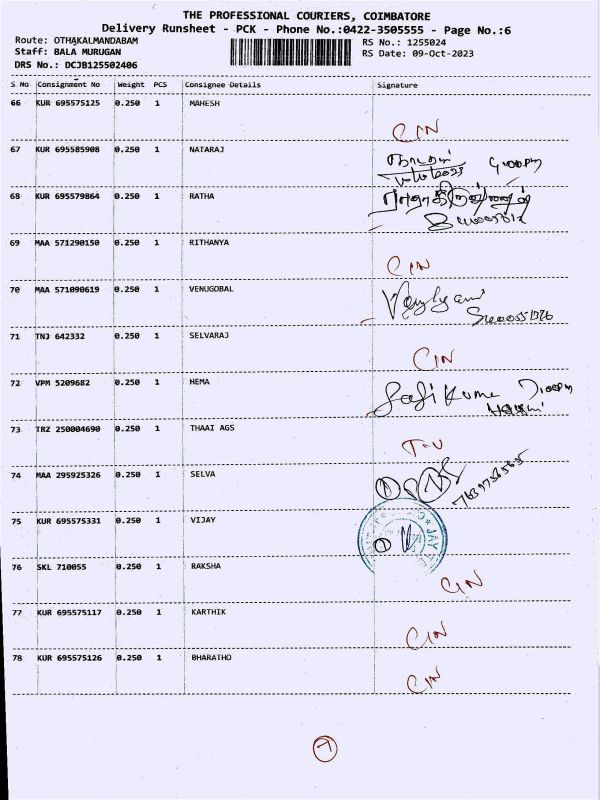 THE PROFESSIONAL COURIERS, COIMBATORE
Delivery Runsheet - PCK - Phone No.:0422-3505555 - Page No.:6
Route: OTHAKALMANDABAM
RS No.: 1255024
Staff: BALA MURUGAN
RS Date: 09-Oct-2023
DRS No.: DCJB125502406
S No Consignment No Weight PCS Consignee Details Signature
66 KUR 695575125 0.250 1 MAHESH
CIN
67 KUR 695585908 0.250 1 NATARAJ
68 KUR 695579864 0.250 1 RATHA
69 MAA 571290150 0.250 1 RITHANYA
CIN
70 MAA 571090619 0.250 1 VENUGOBAL
71 TNJ 642332 0.250 1 SELVARAJ
CIN
72 VPM 5209682 0.250 1 HEMA
73 TRZ 250004690 0.250 1 THAAI AGS
74 MAA 295925326 0.250 1 SELVA
75 KUR 695575331 0.250 1 VIJAY
JAY
76 SKL 710055 0.250 1 RAKSHA
CIN
77 KUR 695575117 0.250 1 KARTHIK
CIN
78 KUR 695575126 0.250 1 BHARATHO
CIN
7